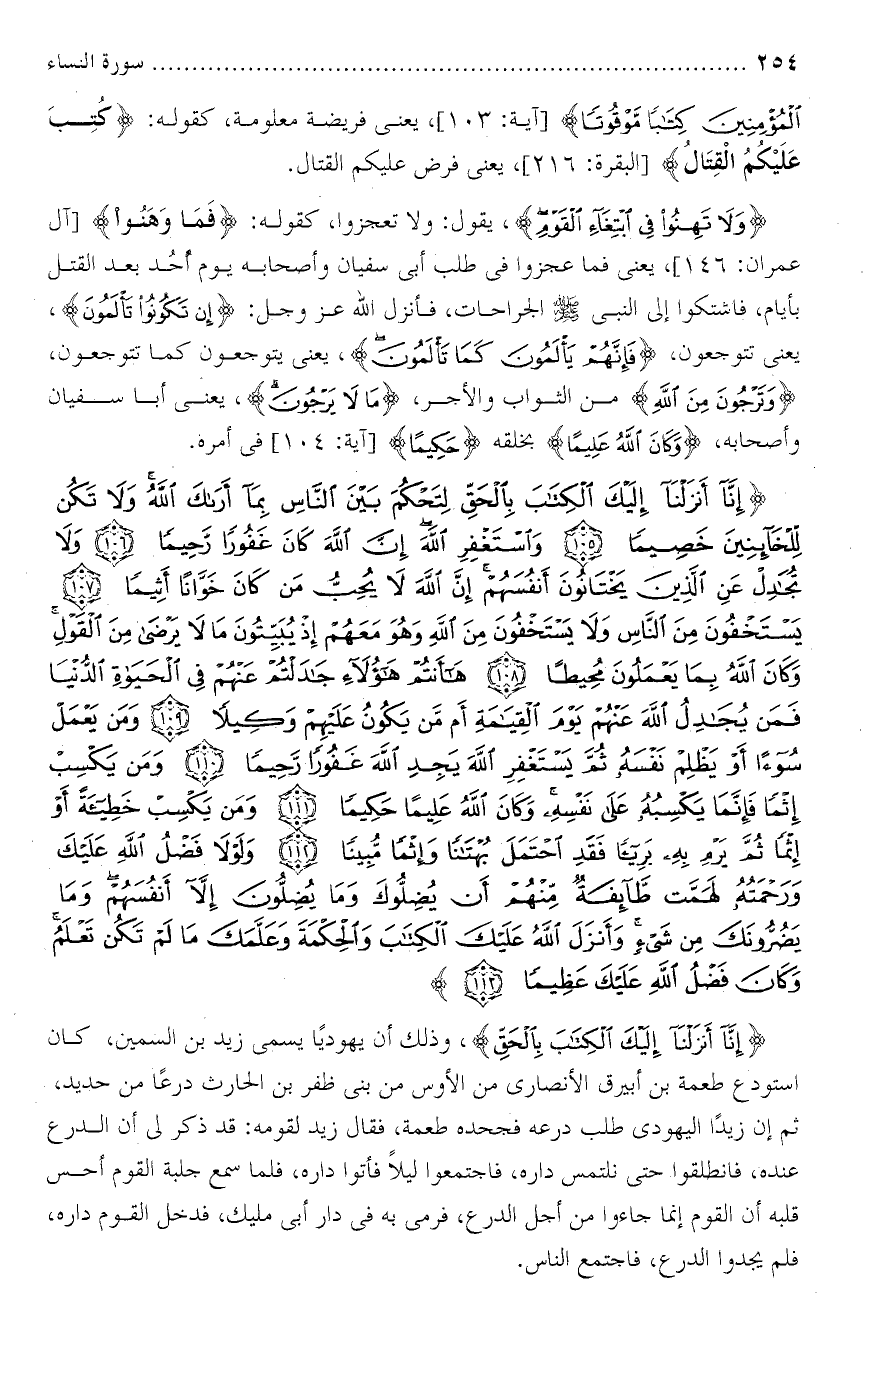 ٢٥٤ ............................................................................ سورة النساء
ٱلْمُؤْمِنِينَ كِتَٰبًا مَّوْقُوتًا﴾ [آية: ١٠٣]، يعنى فريضة معلومة، كقوله: ﴿كُتِبَ
عَلَيْكُمُ الْقِتَالُ﴾ [البقرة: ٢١٦]، يعنى فرض عليكم القتال.
﴿وَلَا تَهِنُوا۟ فِى ٱبْتِغَآءِ ٱلْقَوْمِۖ﴾، يقول: ولا تعجزوا، كقوله: ﴿فَمَا وَهَنُوا۟﴾ [آل
عمران: ١٤٦]، يعنى فما عجزوا فى طلب أبى سفيان وأصحابه يوم أُحُد بعد القتل
بأيام، فاشتكوا إلى النبى ﷺ الجراحات، فأنزل الله عز وجل: ﴿إِن تَكُونُوا۟ تَأْلَمُونَ﴾،
يعنى تتوجعون، ﴿فَإِنَّهُمْ يَأْلَمُونَ كَمَا تَأْلَمُونَۖ﴾، يعنى يتوجعون كما تتوجعون،
﴿وَتَرْجُونَ مِنَ ٱللَّهِ﴾ من الثواب والأجر، ﴿مَا لَا يَرْجُونَۗ﴾، يعنى أبا سفيان
وأصحابه، ﴿وَكَانَ ٱللَّهُ عَلِيمًا﴾ بخلقه ﴿حَكِيمًا﴾ [آية: ١٠٤] فى أمره.
﴿إِنَّآ أَنزَلْنَآ إِلَيْكَ ٱلْكِتَٰبَ بِٱلْحَقِّ لِتَحْكُمَ بَيْنَ ٱلنَّاسِ بِمَآ أَرَىٰكَ ٱللَّهُۚ وَلَا تَكُن
لِّلْخَآئِنِينَ خَصِيمًا ١٠٥ وَٱسْتَغْفِرِ ٱللَّهَۖ إِنَّ ٱللَّهَ كَانَ غَفُورًا رَّحِيمًا ١٠٦ وَلَا
تُجَٰدِلْ عَنِ ٱلَّذِينَ يَخْتَانُونَ أَنفُسَهُمْۚ إِنَّ ٱللَّهَ لَا يُحِبُّ مَن كَانَ خَوَّانًا أَثِيمًا ١٠٧
يَسْتَخْفُونَ مِنَ ٱلنَّاسِ وَلَا يَسْتَخْفُونَ مِنَ ٱللَّهِ وَهُوَ مَعَهُمْ إِذْ يُبَيِّتُونَ مَا لَا يَرْضَىٰ مِنَ ٱلْقَوْلِۚ
وَكَانَ ٱللَّهُ بِمَا يَعْمَلُونَ مُحِيطًا ١٠٨ هَٰٓأَنتُمْ هَٰٓؤُلَآءِ جَٰدَلْتُمْ عَنْهُمْ فِى ٱلْحَيَوٰةِ ٱلدُّنْيَا
فَمَن يُجَٰدِلُ ٱللَّهَ عَنْهُمْ يَوْمَ ٱلْقِيَٰمَةِ أَم مَّن يَكُونُ عَلَيْهِمْ وَكِيلًا ١٠٩ وَمَن يَعْمَلْ
سُوٓءًا أَوْ يَظْلِمْ نَفْسَهُۥ ثُمَّ يَسْتَغْفِرِ ٱللَّهَ يَجِدِ ٱللَّهَ غَفُورًا رَّحِيمًا ١١٠ وَمَن يَكْسِبْ
إِثْمًا فَإِنَّمَا يَكْسِبُهُۥ عَلَىٰ نَفْسِهِۦۚ وَكَانَ ٱللَّهُ عَلِيمًا حَكِيمًا ١١١ وَمَن يَكْسِبْ خَطِيٓـَٔةً أَوْ
إِثْمًا ثُمَّ يَرْمِ بِهِۦ بَرِيٓـًٔا فَقَدِ ٱحْتَمَلَ بُهْتَٰنًا وَإِثْمًا مُّبِينًا ١١٢ وَلَوْلَا فَضْلُ ٱللَّهِ عَلَيْكَ
وَرَحْمَتُهُۥ لَهَمَّت طَّآئِفَةٌ مِّنْهُمْ أَن يُضِلُّوكَ وَمَا يُضِلُّونَ إِلَّآ أَنفُسَهُمْۖ وَمَا
يَضُرُّونَكَ مِن شَىْءٍۚ وَأَنزَلَ ٱللَّهُ عَلَيْكَ ٱلْكِتَٰبَ وَٱلْحِكْمَةَ وَعَلَّمَكَ مَا لَمْ تَكُن تَعْلَمُۚ
وَكَانَ فَضْلُ ٱللَّهِ عَلَيْكَ عَظِيمًا ١١٣ ﴾
﴿إِنَّآ أَنزَلْنَآ إِلَيْكَ ٱلْكِتَٰبَ بِٱلْحَقِّ﴾، وذلك أن يهوديًا يسمى زيد بن السمين، كان
استودع طعمة بن أبيرق الأنصارى من الأوس من بنى ظفر بن الحارث درعًا من حديد،
ثم إن زيدًا اليهودى طلب درعه فجحده طعمة، فقال زيد لقومه: قد ذكر لى أن الدرع
عنده، فانطلقوا حتى نلتمس داره، فاجتمعوا ليلاً فأتوا داره، فلما سمع جلبة القوم أحس
قلبه أن القوم إنما جاءوا من أجل الدرع، فرمى به فى دار أبى مليك، فدخل القوم داره،
فلم يجدوا الدرع، فاجتمع الناس.